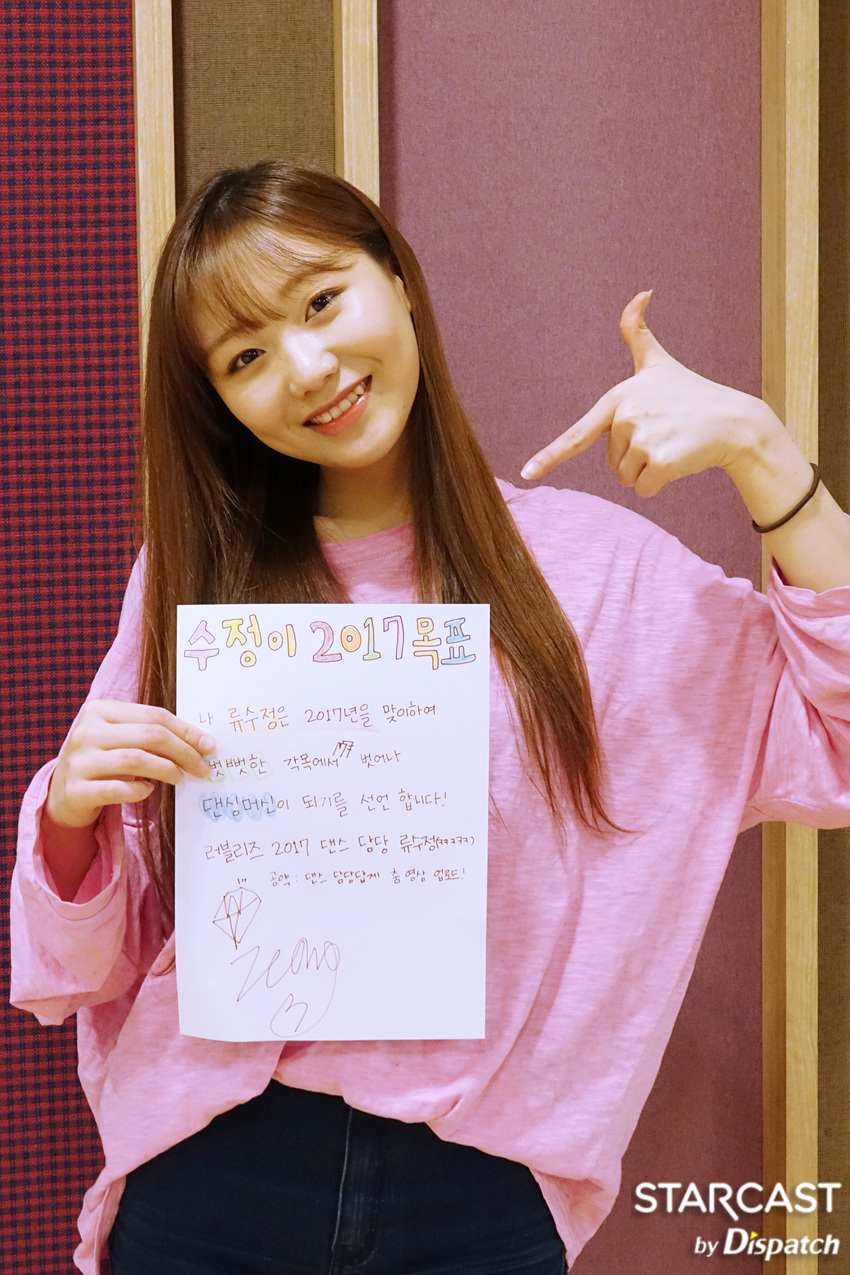 수정이 2017 목표
나 류수정은 2017년을 맞이하여
뻣뻣한 각목에서 벗어나
댄싱머신이 되기를 선언 합니다!
러블리즈 2017 댄스 담당 류수정(ㅋㅋㅋㅋㅋ)
공약 : 댄스 담당답게 춤 영상 업로드!
STARCAST
by Dispatch